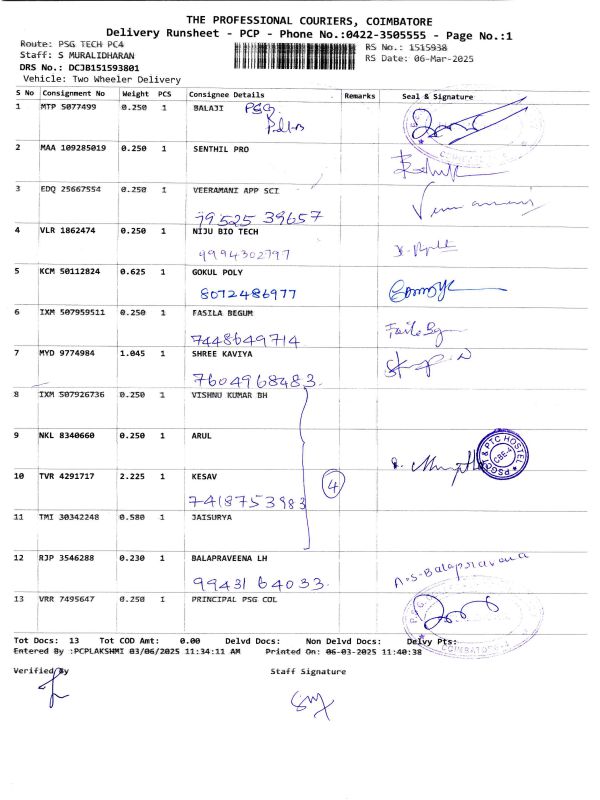 THE PROFESSIONAL COURIERS, COIMBATORE
Delivery Runsheet - PCP - Phone No.:0422-3505555 - Page No.:1
Route: PSG TECH PC4
RS No.: 1515938
Staff: S MURALIDHARAN
RS Date: 06-Mar-2025
DRS No.: DCJB151593801
Vehicle: Two Wheeler Delivery
S No Consignment No Weight PCS Consignee Details Remarks Seal & Signature
1 MTP 5077499 0.250 1 BALAJI PSG
2 MAA 109285019 0.250 1 SENTHIL PRO
3 EDQ 25667554 0.250 1 VEERAMANI APP SCI
79525 39657
4 VLR 1862474 0.250 1 NIJU BIO TECH
9994302797
5 KCM 50112824 0.625 1 GOKUL POLY
8072486977
6 IXM 507959511 0.250 1 FASILA BEGUM
7448649714
7 MYD 9774984 1.045 1 SHREE KAVIYA
7604968483.
8 IXM 507926736 0.250 1 VISHNU KUMAR BH
9 NKL 8340660 0.250 1 ARUL
PSGCT & PTC HOSTEL CBE-4
10 TVR 4291717 2.225 1 KESAV
7418753983
4
11 TMI 30342248 0.580 1 JAISURYA
12 RJP 3546288 0.230 1 BALAPRAVEENA LH
99431 64033. A.S-Balapraveena
13 VRR 7495647 0.250 1 PRINCIPAL PSG COL
Tot Docs: 13 Tot COD Amt: 0.00 Delvd Docs: Non Delvd Docs: Delvy Pts:
Entered By :PCPLAKSHMI 03/06/2025 11:34:11 AM Printed On: 06-03-2025 11:40:38
COIMBATORE
Verified By
Staff Signature